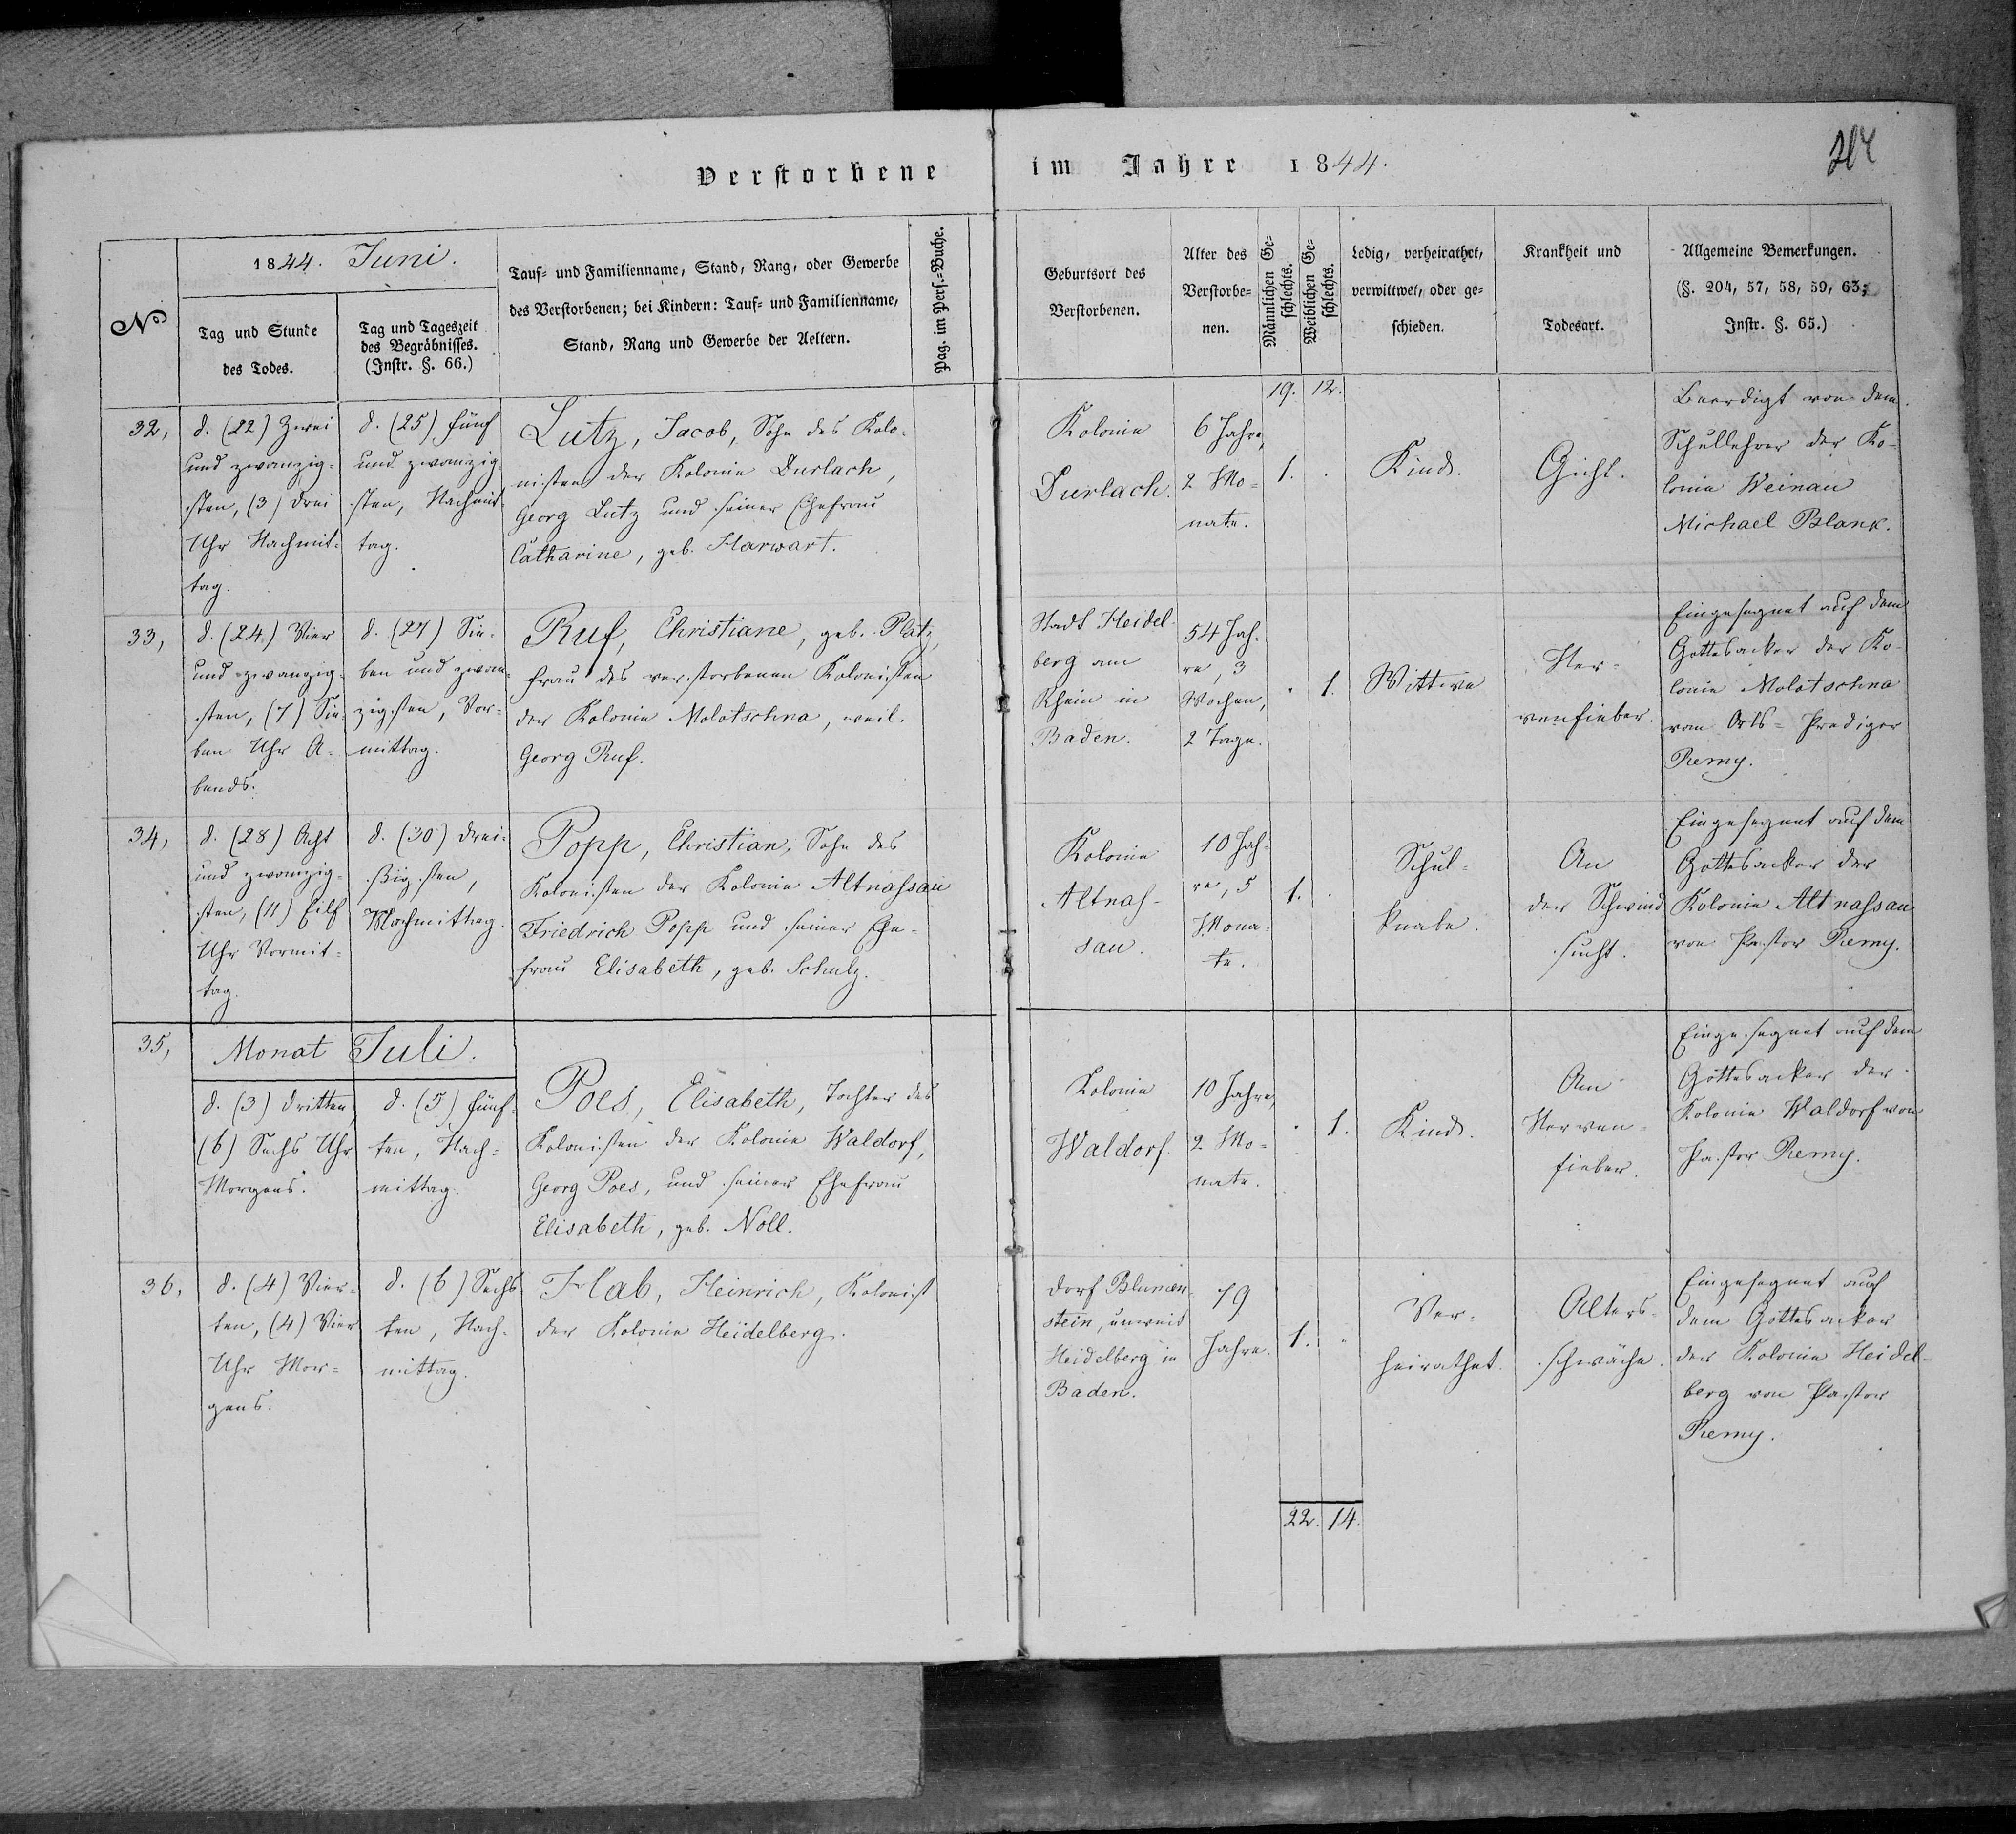 Verstorbene im Jahre 1844.
№
1844. Juni.
Tag und Stunde
des Todes.
Tag und Tageszeit
des Begräbnisses.
(Instr. §. 66.)
Tauf- und Familienname, Stand, Rang, oder Gewerbe
des Verstorbenen; bei Kindern: Tauf- und Familienname,
Stand, Rang und Gewerbe der Aeltern.
Pag. im Pers.-Buche.
Geburtsort des
Verstorbenen.
Alter des
Verstorbe-
nen.
Männlichen Ge-
schlechts.
Weiblichen Ge-
schlechts.
Ledig, verheirathet,
verwittwet, oder ge-
schieden.
Krankheit und
Todesart.
Allgemeine Bemerkungen.
(§. 204, 57, 58, 59, 63;
Instr. §. 65.)
19. 12.
32,
d. (22) Zwei
und zwanzig-
sten, (3) drei
Uhr Nachmit-
tag.
d. (25) fünf
und zwanzig-
sten, Nachmit-
tag.
Lutz, Jacob, Sohn des Kolo-
nisten der Kolonie Durlach,
Georg Lutz und seiner Ehefrau
Catharine, geb. Harwart.
Kolonie
Durlach.
6 Jahre,
2 Mo-
nate.
1.
Kind.
Gicht.
Beerdigt von dem
Schullehrer der Ko-
lonie Weinau
Michael Blank.
33,
d. (24) Vier
und zwanzig-
sten, (7) Sie-
ben Uhr A-
bends.
d. (27) Sie-
ben und zwan-
zigsten, Vor-
mittag.
Ruf, Christiane, geb. Platz,
Frau des verstorbenen Kolonisten
der Kolonie Molotschna, weil.
Georg Ruf.
Stadt Heidel-
berg am
Rhein in
Baden.
54 Jah-
re, 3
Wochen,
2 Tage.
1.
Wittwe
Ner-
venfieber.
Eingesegnet auf dem
Gottesacker der Ko-
lonie Molotschna
vom Orts-Prediger
Remy.
34,
d. (28) Acht
und zwanzig-
sten, (11) Eilf
Uhr Vormit-
tag.
d. (30) drei-
ßigsten,
Nachmittag.
Popp, Christian, Sohn des
Kolonisten der Kolonie Altnassau
Friedrich Popp und seiner Ehe-
frau Elisabeth, geb. Schulz.
Kolonie
Altnas-
sau.
10 Jah-
re, 5
Mona-
te.
1.
Schul-
knabe.
An
der Schwind
sucht.
Eingesegnet auf dem
Gottesacker der
Kolonie Altnassau
von Pastor Remy.
35,
Monat Juli.
d. (3) dritten,
(6) Sechs Uhr
Morgens.
d. (5) fünf-
ten, Nach-
mittag.
Poes, Elisabeth, Tochter des
Kolonisten der Kolonie Waldorf,
Georg Poes, und seiner Ehefrau
Elisabeth, geb. Noll.
Kolonie
Waldorf.
10 Jahre,
2 Mo-
nate.
1.
Kind.
Am
Nerven-
fieber.
Eingesegnet auf dem
Gottesacker der
Kolonie Waldorf von
Pastor Remy.
36,
d. (4) Vier-
ten, (4) Vier
Uhr Mor-
gens.
d. (6) Sechs-
ten, Nach-
mittag.
Hab, Heinrich, Kolonist
der Kolonie Heidelberg.
Dorf Blumen-
stein, unweit
Heidelberg in
Baden.
79
Jahre.
1.
Ver-
heirathet.
Alters-
schwäche.
Eingesegnet auf
dem Gottesacker
der Kolonie Heidel-
berg von Pastor
Remy.
22. 14.